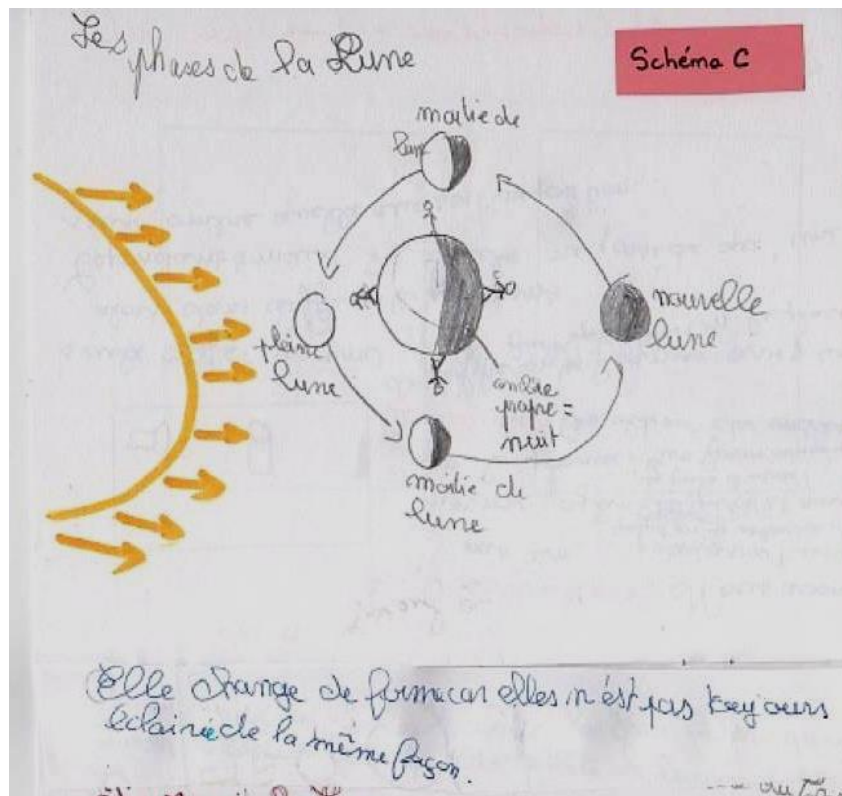 Les phases de la Lune
Schéma C
moitié de
lune
nouvelle
lune
pleine
lune
ombre
propre =
nuit
moitié de
lune
Elle change de forme car elles n'est pas toujours
éclairé de la même façon.